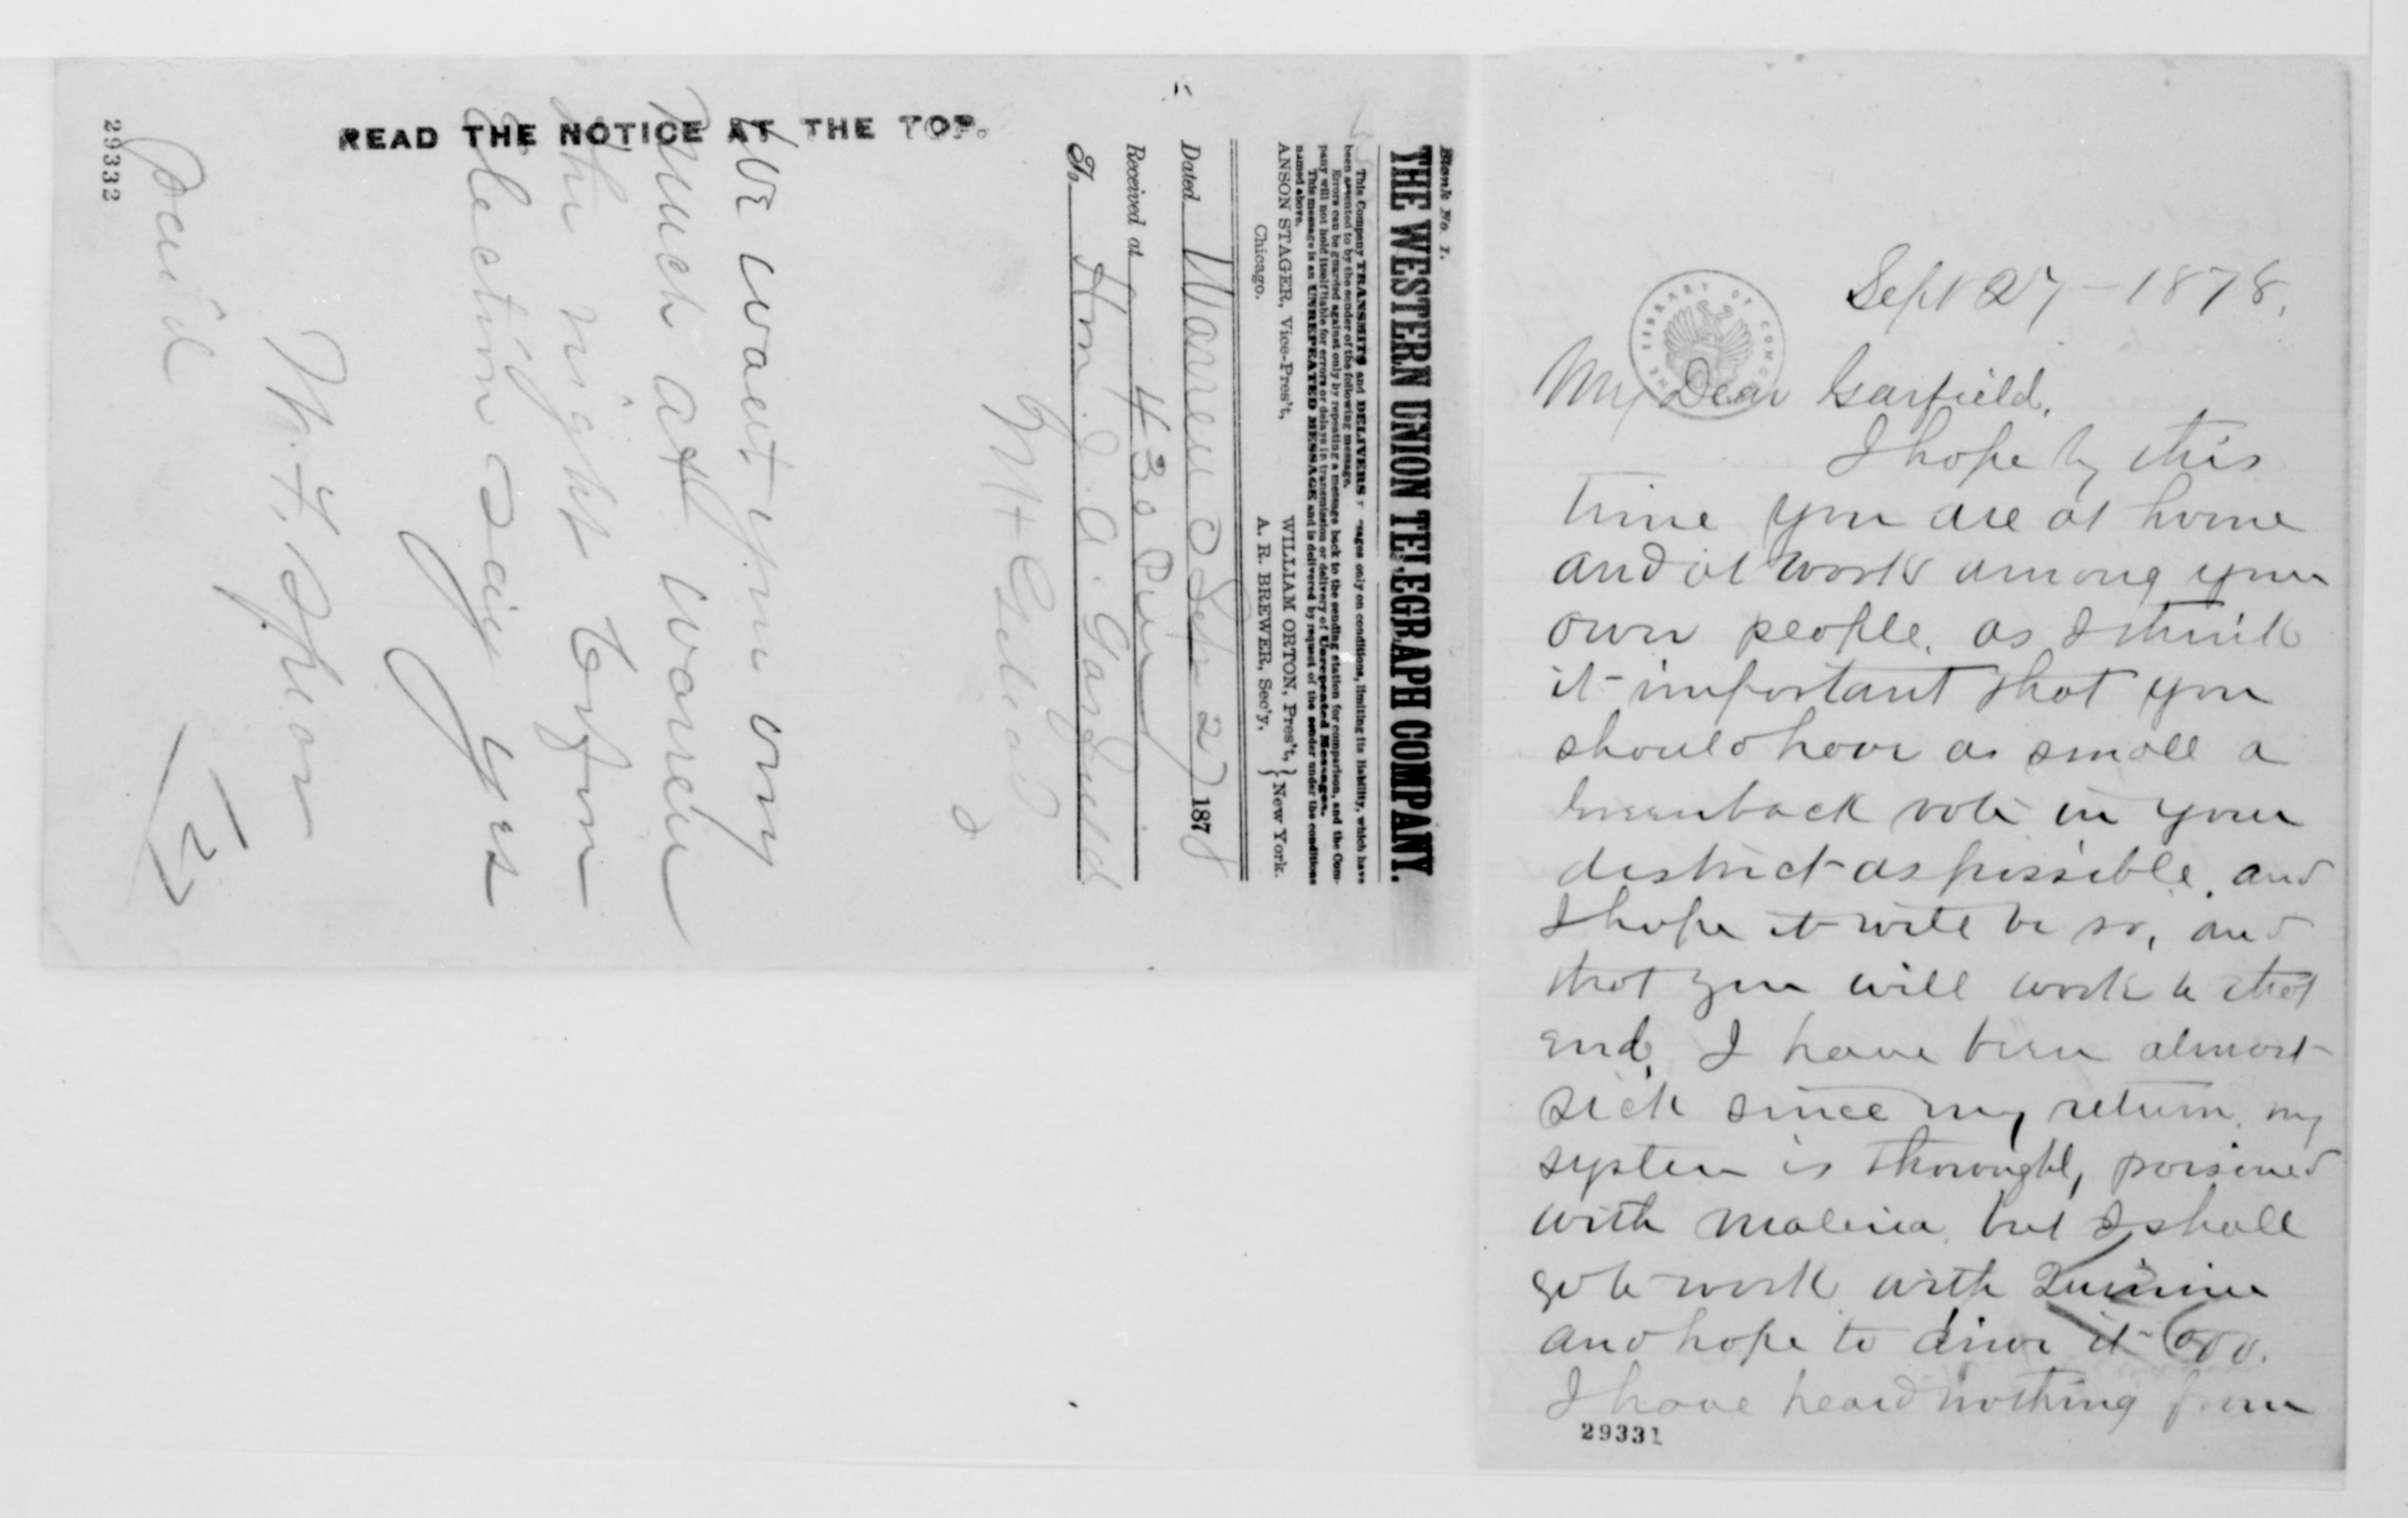 Blank No. 1.
THE WESTERN UNION TELEGRAPH COMPANY.
This Company TRANSMITS and DELIVERS messages only on conditions, limiting its liability, which have
been assented to by the sender of the following message.
Errors can be guarded against only by repeating a message back to the sending station for comparison, and the Com-
pany will not hold itself liable for errors or delays in transmission or delivery of Unrepeated Messages.
This message is an UNREPEATED MESSAGE and is delivered by request of the sender under the conditions
named above.
ANSON STAGER, Vice-Pres't, Chicago.
WILLIAM ORTON, Pres't, } New York.
A. R. BREWER, Sec'y, }
Dated Warren O Sept 27 1878
Received at 430 Pm
To Hon J. A. Garfield
Mt Gilead
O
We want you very
much at Warren
the night before
Election Say yes
paid
READ THE NOTICE AT THE TOP.
29332
Sept 27 - 1878.
LIBRARY OF CONGRESS
My Dear Garfield,
I hope by this
time you are at home
and at work among your
own people, as I think
it important that you
should have as small a
Greenback vote in your
district as possible, and
I hope it will be so, and
that you will work to that
end, I have been almost
sick since my return, my
system is thoroughly poisoned
with malaria, but I shall
go to work with Quinine
and hope to drive it off.
I have heard nothing from
29331